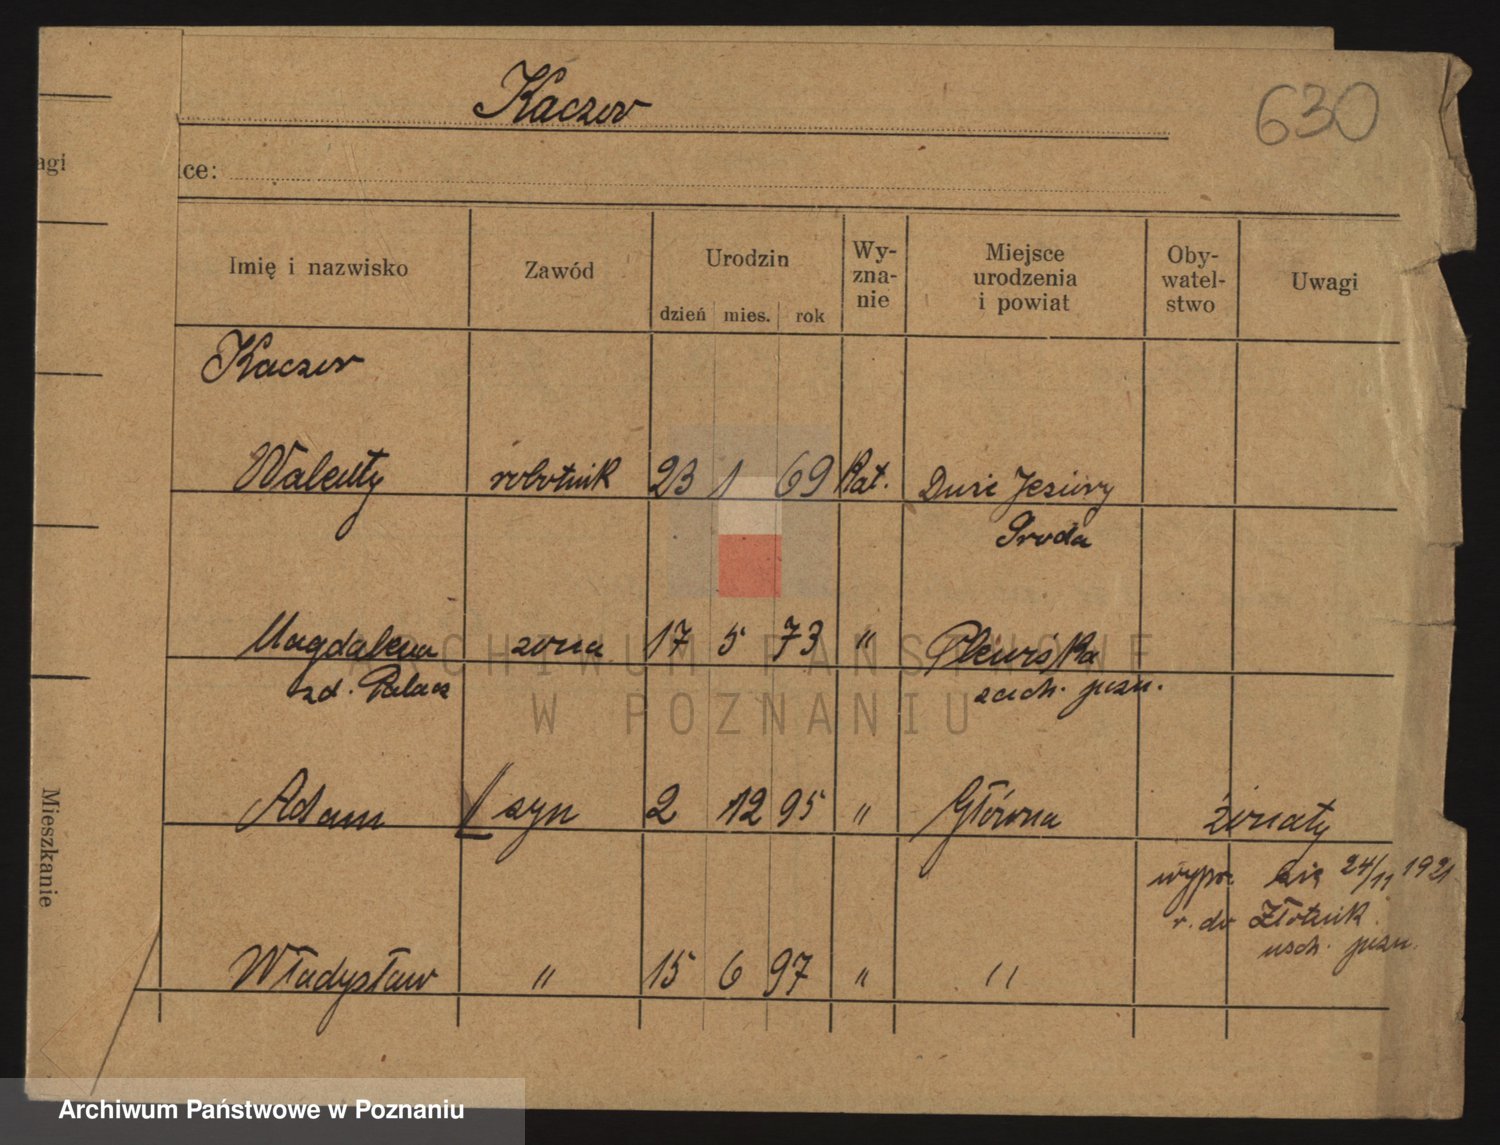 Kaczor
630
agi
ice:
Imię i nazwisko
Zawód
Urodzin
dzień
mies.
rok
Wy-
zna-
nie
Miejsce
urodzenia
i powiat
Oby-
watel-
stwo
Uwagi
Kaczor
Walenty robotnik 23 1 69 Kat. Duże Jeziory
Środa
Magdalena żona 17 5 73 " Plewiska
zd. Palacz zach. pozn.
Adam syn 2 12 95 " Główna żonaty
wypr. się 24/11 1921
r. do Złotnik
wsch. pozn.
Władysław " 15 6 97 " "
Mieszkanie
ARCHIWUM PAŃSTWOWE
W POZNANIU
Archiwum Państwowe w Poznaniu